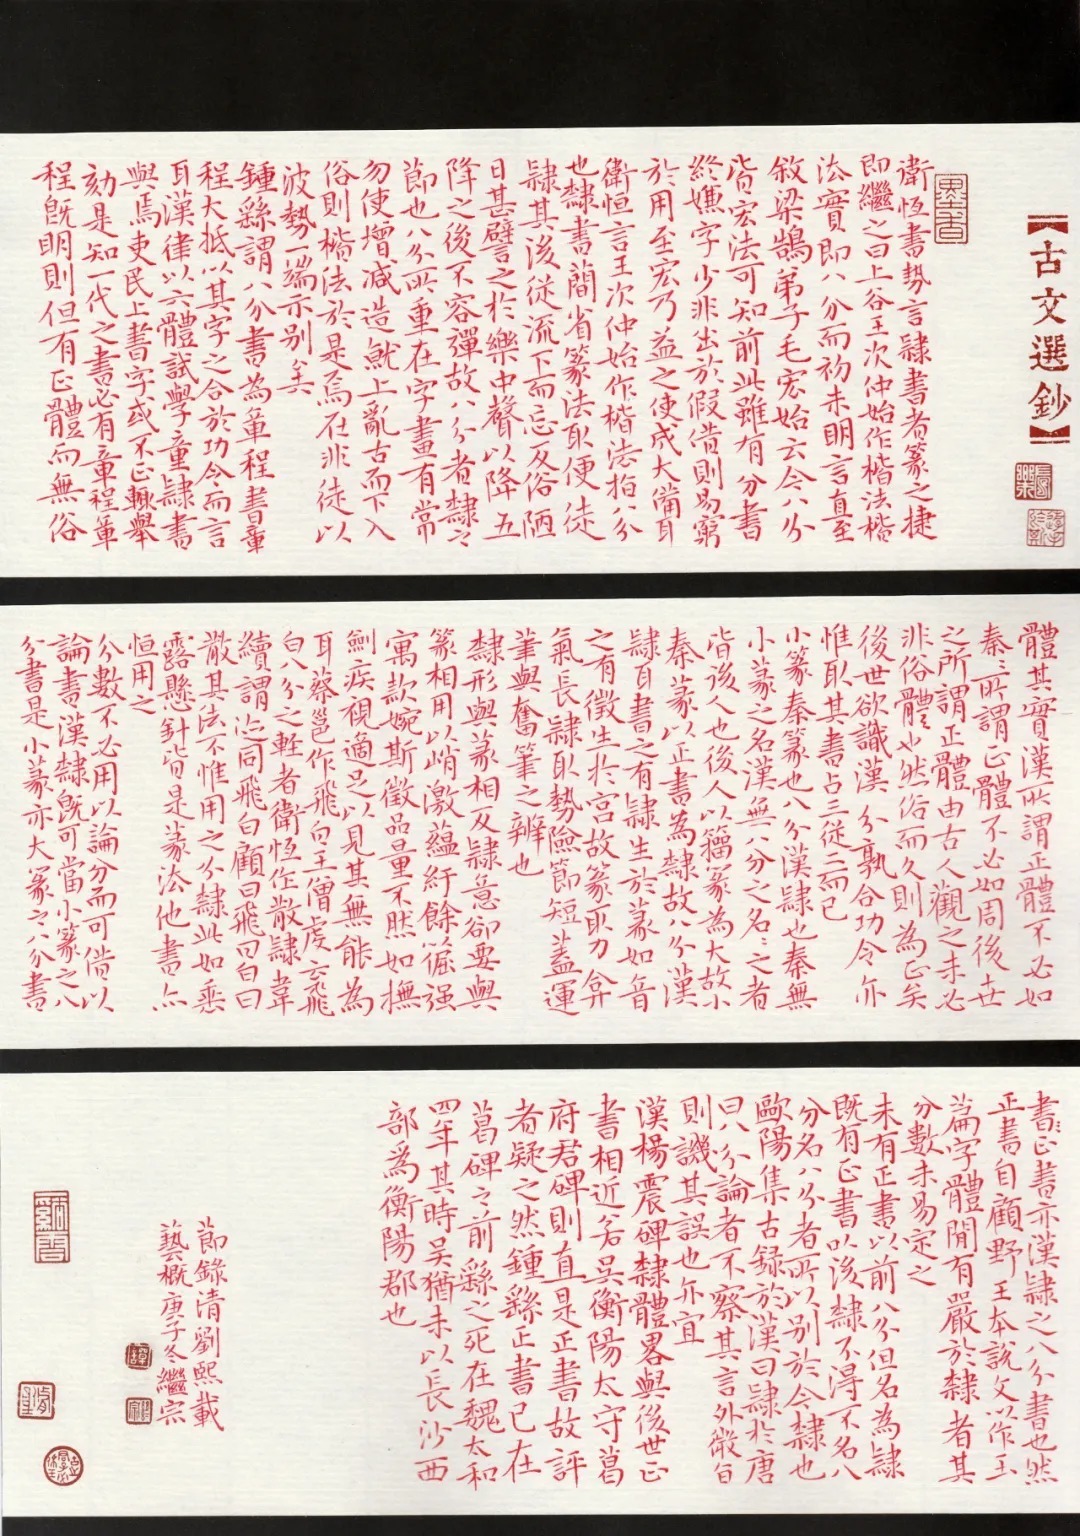 【古文選鈔】
衛恆書勢言隸書者篆之捷
即繼之曰上谷王次仲始作楷法楷
法實即八分而初未明言直至
敘梁鵠弟子毛宏始云今八分
皆宏法可知前此雖有分書
終嫌字少非出於假借則易窮
於用至宏乃益之使成大備耳
衛恒言王次仲始作楷法指八分
也隸書簡省篆法取便徒
隸其後從流下而忘反俗陋
日甚譬之於樂中聲以降五
降之後不容彈故八分者隸之
節也八分所重在字畫有常
勿使增减造魷上亂古而下入
俗則楷法於是焉在非徒以
波勢一端示别矣
鍾繇謂八分書為章程書章
程大抵以其字之合於功令而言
耳漢律以六體試學童隸書
與焉吏民上書字或不正輒舉
劾是知一代之書必有章程章
程既明則但有正體而無俗
體其實漢所謂正體不必如
秦秦所謂正體不必如周後世
之所謂正體由古人觀之未必
非俗體也然俗而久則為正矣
後世欲識漢分孰合功令亦
惟取其書占三從二而已
小篆秦篆也八分漢隸也秦無
小篆之名漢無八分之名名之者
皆後人也後人以籀篆為大故小
秦篆以正書為隸故八分漢
隸耳書之有隸生於篆如音
之有徵生於宮故篆取力弇
氣長隸取勢險節短蓋運
筆與奮筆之辨也
隸形與篆相反隸意卻要與
篆相用以峭激蘊紆餘倔强
寓款婉斯徵品量不然如撫
劍疾視適足以見其無能為
耳蔡邕作飛白王僧虔云飛
白八分之輕者衛恆作散隸韋
續謂迹同飛白顧曰飛曰白曰
散其法不惟用之分隸此如垂
露懸針皆是篆法他書亦
恒用之
分數不必用以論分而可借以
論書漢隸既可當小篆之八
分書是小篆亦大篆之八分書
書正書亦漢隸之八分書也然
正書自顧野王本說文以作玉
篇字體閒有嚴於隸者其
分數未易定之
未有正書以前八分但名為隸
既有正書以後隸不得不名八
分名八分者所以别於今隸也
歐陽集古録於漢曰隸於唐
曰八分論者不察其言外微旨
則譏其誤也亦宜
漢楊震碑隸體畧與後世正
書相近若吳衡陽太守葛
府君碑則直是正書故評
者疑之然鍾繇正書已在
葛碑之前繇之死在魏太和
四年其時吴猶未以長沙西
部為衡陽郡也
節錄清劉熙載
藝概庚子冬繼宗